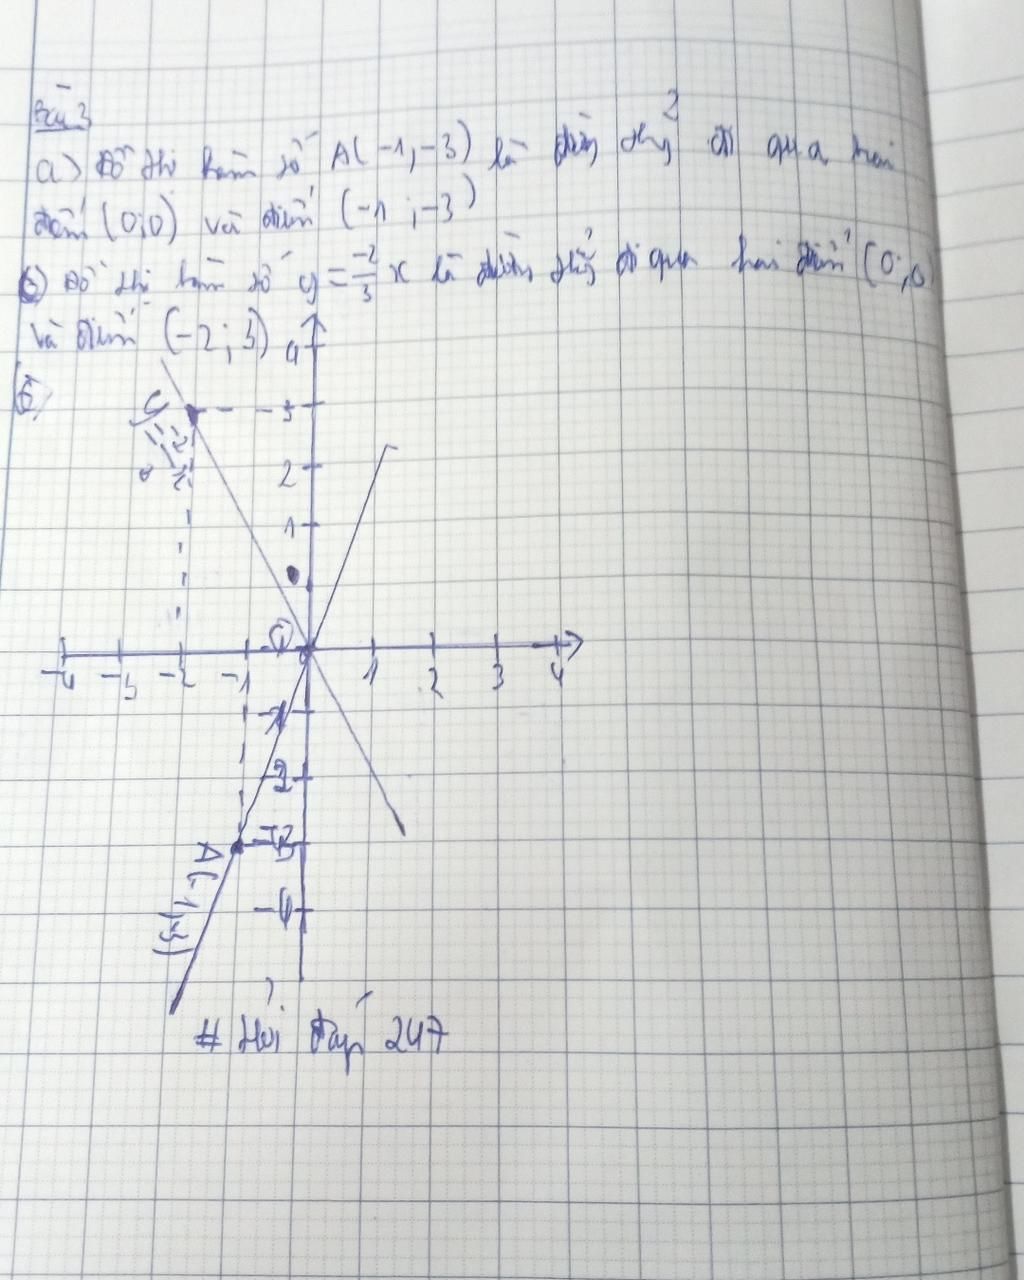 Bài 3
a) Đồ thị hàm số A(-1,-3) là đường thẳng đi qua hai
điểm (0;0) và điểm (-1;-3)
b) Đồ thị hàm số y = -2/3 x là đường thẳng đi qua hai điểm (0;0)
và điểm (-2;3)
4
3
2
1
-4 -3 -2 -1 1 2 3 4
-1
-2
-3
A(-1,-3)
-4
# Hỏi đáp 247